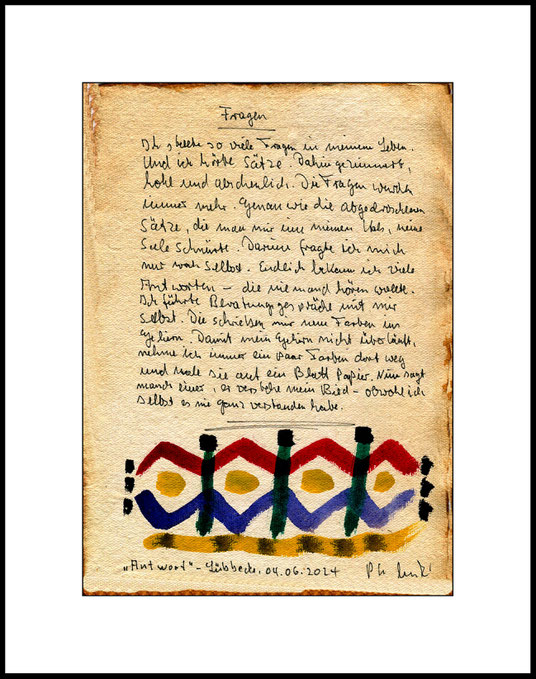 Fragen
Ich stellte so viele Fragen in meinem Leben.
Und ich hörte Sätze. Dahingezimmert,
hohl und abscheulich. Die Fragen wurden
immer mehr. Genau wie die abgedroschenen
Sätze, die man mir um meinen Hals, meine
Seele schnürte. Darum fragte ich mich
nur noch selbst. Endlich bekam ich viele
Antworten – die niemand hören wollte.
Ich führte Beratungsgespräche mit mir
selbst. Die schrieben mir neue Farben ins
Gehirn. Damit mein Gehirn nicht überläuft,
nehme ich immer ein paar Farben dort weg
und male sie auf ein Blatt Papier. Nun sagt
manch einer, er verstehe mein Bild – obwohl ich
selbst es nie ganz verstanden habe.
„Antwort" – Lübbecke, 04.06.2024